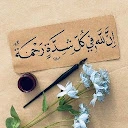 إِنَّ لِلَّهِ فِي كُلِّ شِدَّةٍ رَحْمَةً